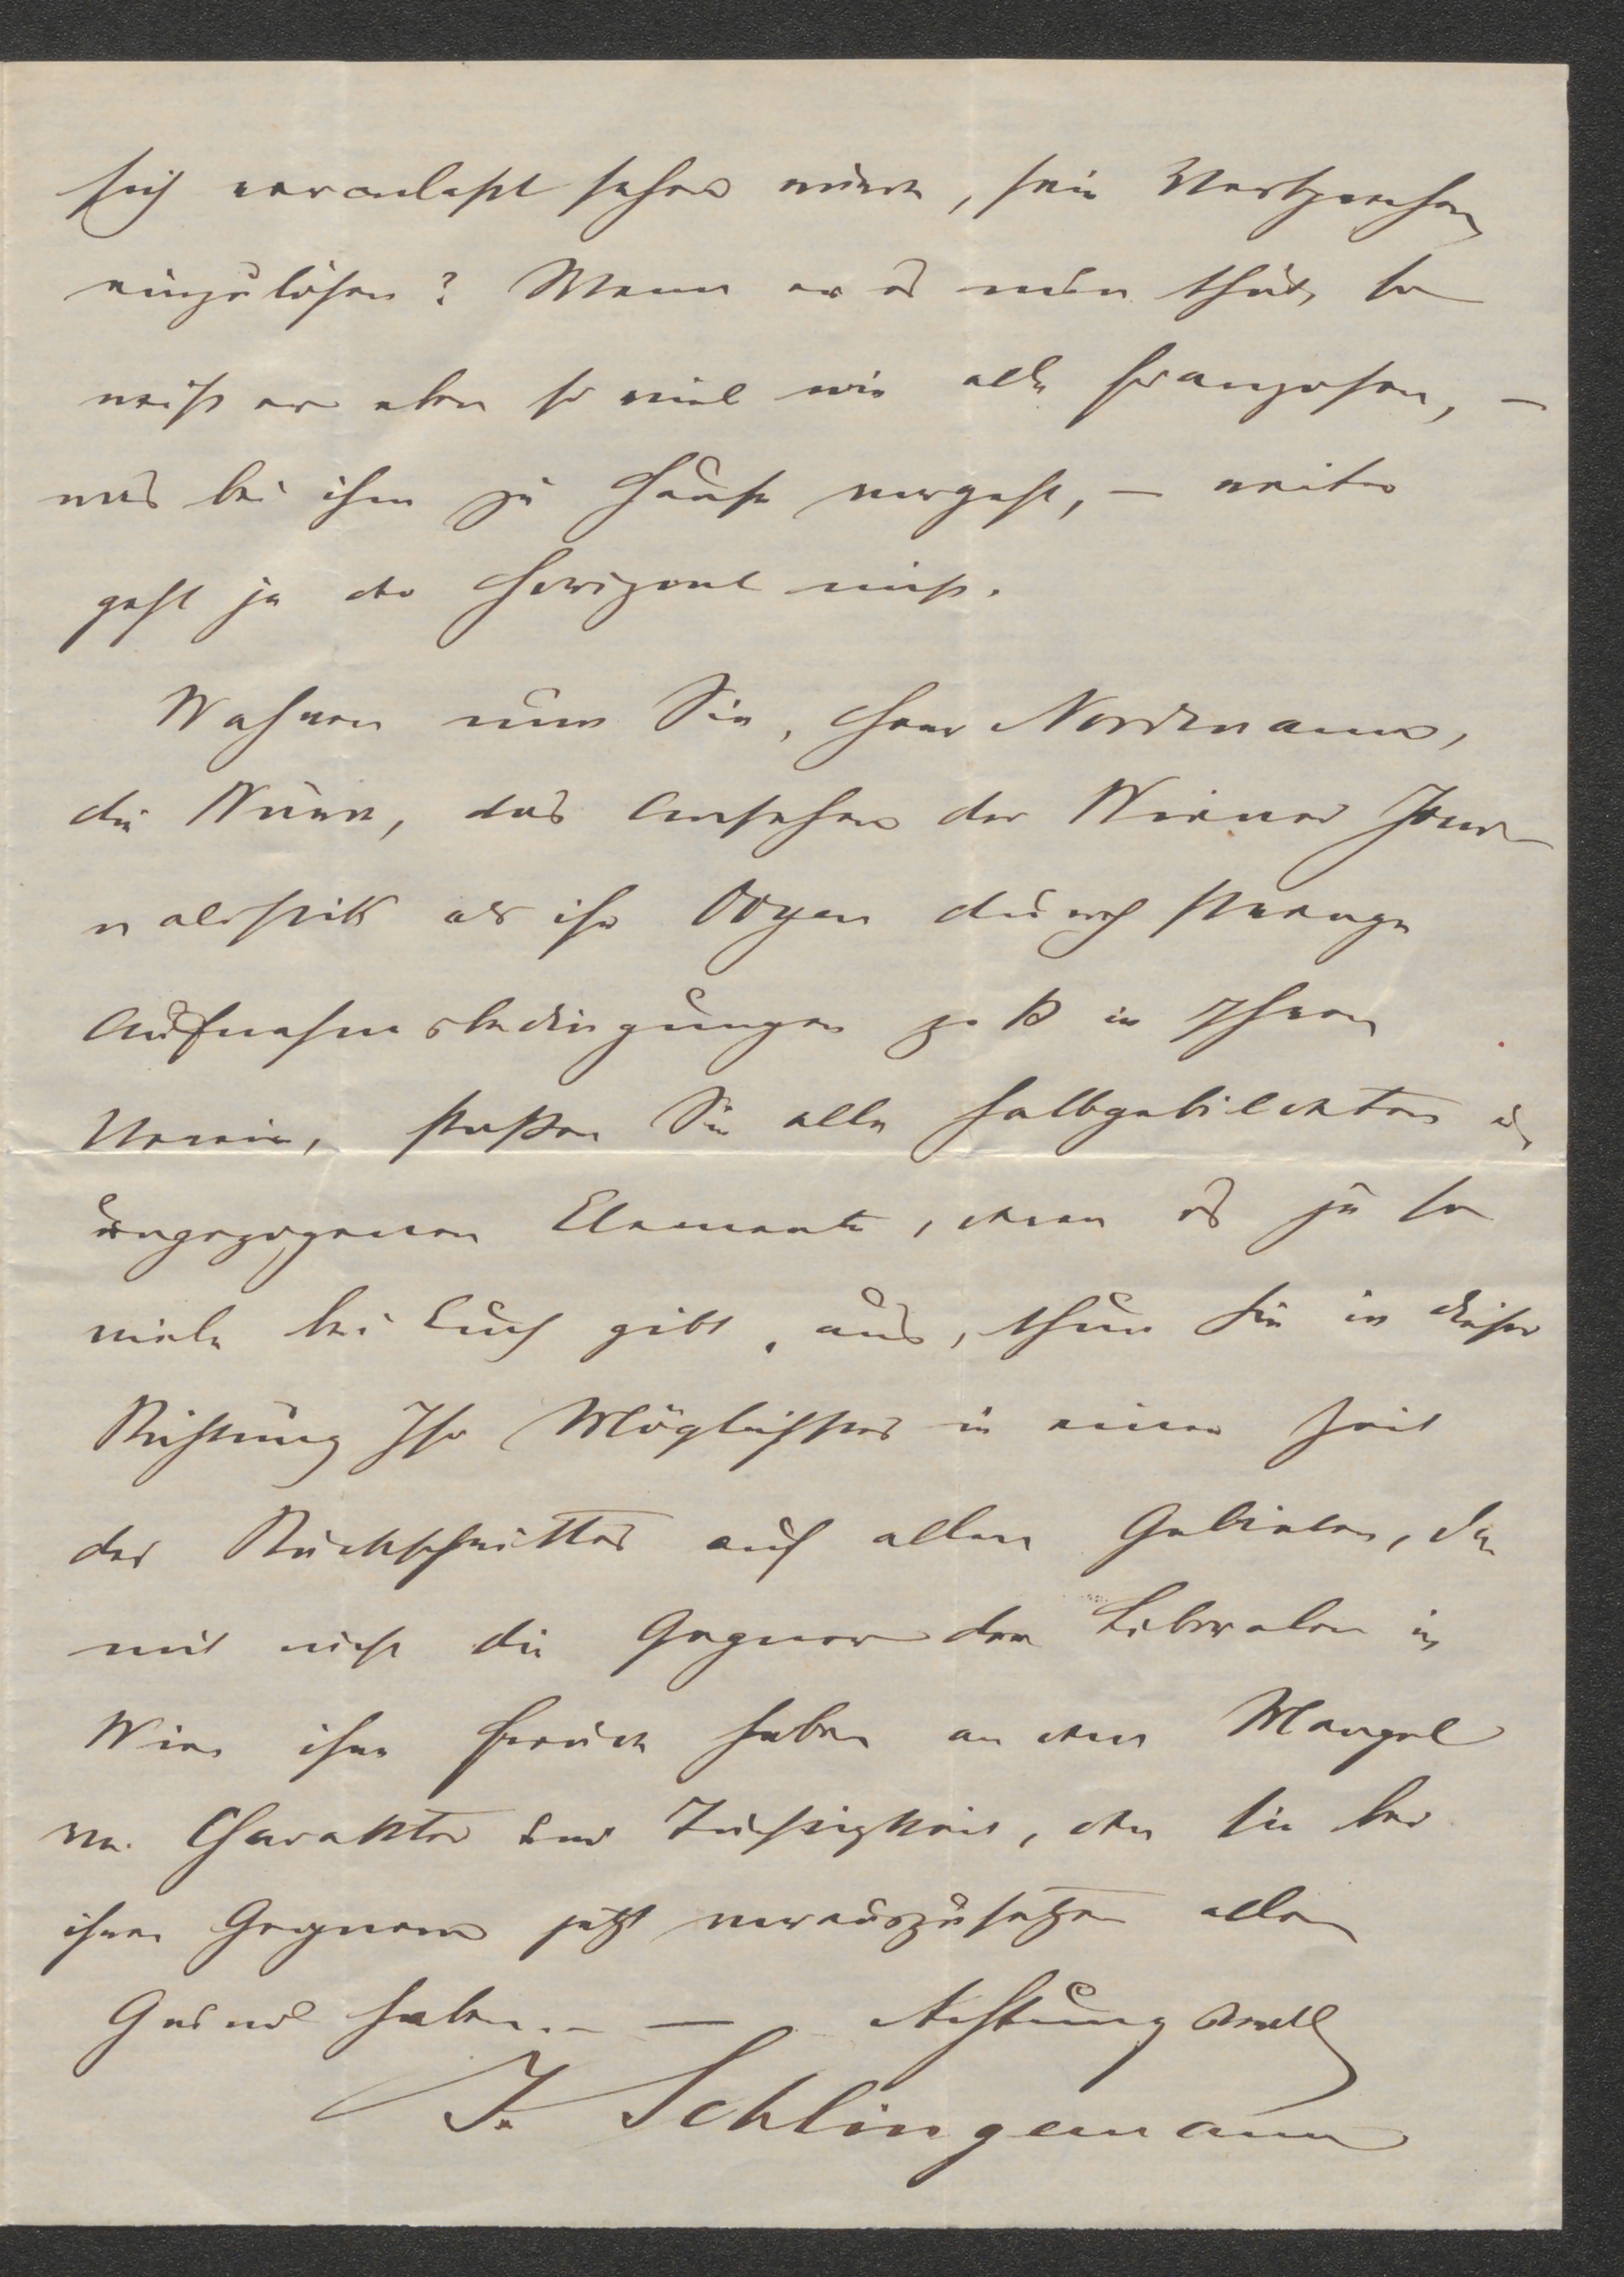 sich veranlaßt sehen würde, sein Versprechen
einzulösen? Wenn er es nun thut, so
weiß er eben so viel wie alle Franzosen, –
was bei ihm zu Hause vorgeht, – weiter
geht ja der Horizont nicht.
Wahren nun Sie, Herr Nordmann,
die Würde, das Ansehen der Wiener Jour-
nalistik als ihr Organ durch strenge
Aufnahmsbedingungen in Ihren
Verein, stoßen Sie alle halbgebildeten u.
ungezogenen Elemente, deren es ja so
viele bei Euch gibt, aus, thun Sie in dieser
Richtung Ihr Möglichstes in einer Zeit
des Rückschrittes auf allen Gebieten, da-
mit nicht die Gegner der Liberalen in
Wien ihre Freude haben an dem Mangel
von Charakter und Tüchtigkeit, den sie bei
ihren Gegnern jetzt vorauszusetzen allen
Grund haben. – — Achtungsvoll
J. Schlingemann